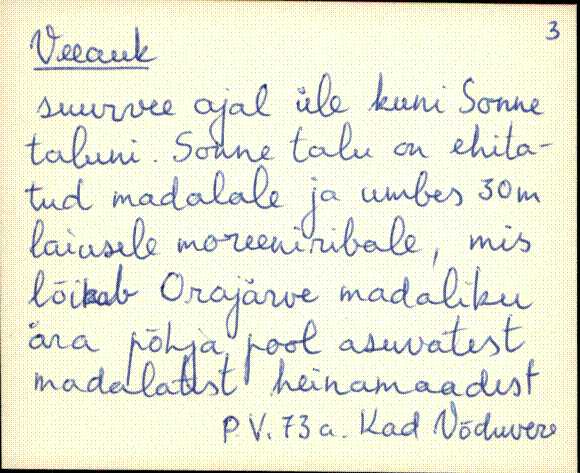 3
Veeauk
suurvee ajal üle kuni Sonne
taluni. Sonne talu on ehita-
tud madalale ja umbes 30m
laiusele moreeniribale, mis
lõikab Orajärve madaliku
ära põhja pool asuvatest
madalatest heinamaadest
P.V. 73 a. Kad Võduvere